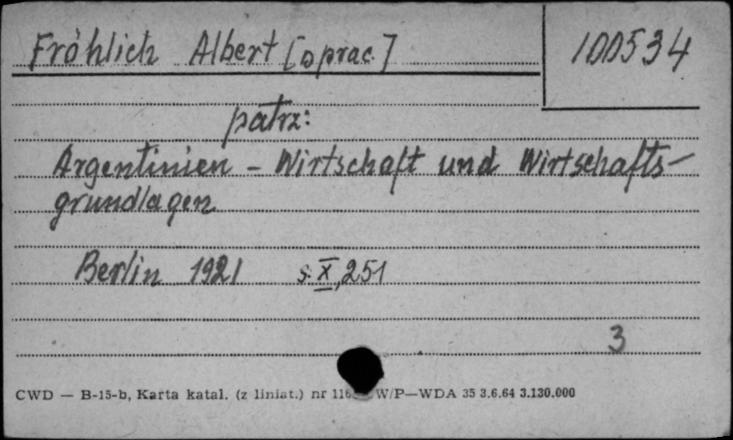 Fröhlich Albert [oprac.] 100534
patrz:
Argentinien - Wirtschaft und Wirtschafts-
grundlagen
Berlin 1921 s. X, 251
3
CWD — B-15-b, Karta katal. (z liniat.) nr W/P—WDA 35 3.6.64 3.130.000